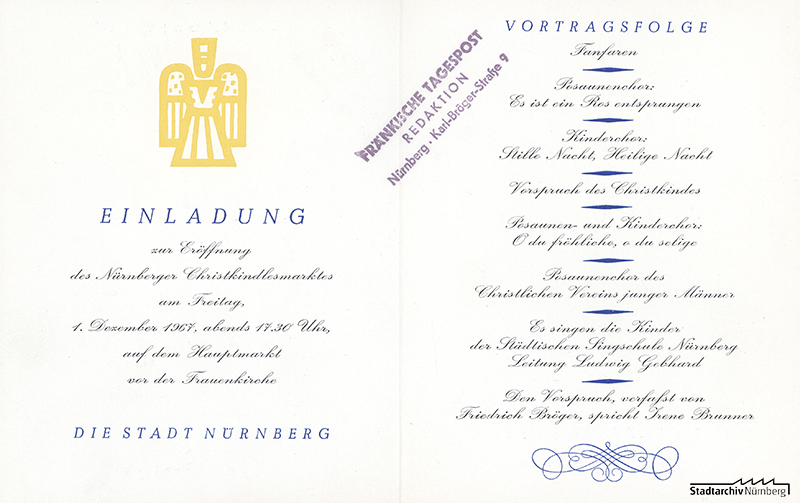 EINLADUNG
zur Eröffnung
des Nürnberger Christkindlesmarktes
am Freitag,
1. Dezember 1967, abends 17.30 Uhr,
auf dem Hauptmarkt
vor der Frauenkirche
DIE STADT NÜRNBERG
FRÄNKISCHE TAGESPOST
REDAKTION
Nürnberg · Karl-Bröger-Straße 9
VORTRAGSFOLGE
Fanfaren
Posaunenchor:
Es ist ein Ros entsprungen
Kinderchor:
Stille Nacht, Heilige Nacht
Vorspruch des Christkindes
Posaunen- und Kinderchor:
O du fröhliche, o du selige
Posaunenchor des
Christlichen Vereins junger Männer
Es singen die Kinder
der Städtischen Singschule Nürnberg
Leitung Ludwig Gebhard
Den Vorspruch, verfaßt von
Friedrich Bröger, spricht Irene Brunner
Stadtarchiv Nürnberg